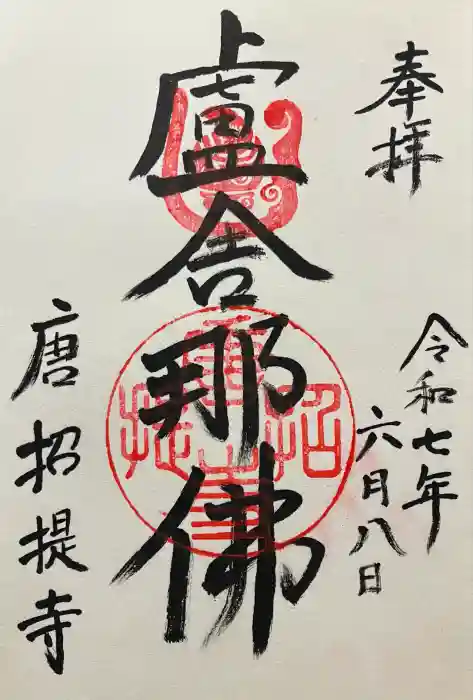 奉拝
令和七年
六月八日
盧舎那佛
唐招提寺